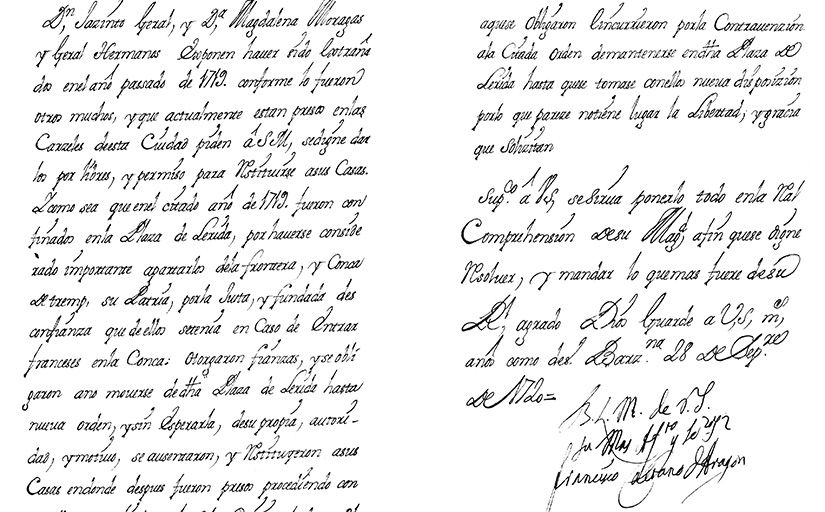 Dn, Jazinto Geral, y Da, Magdalena Moragas
y Geral Hermanos Exponen haver sido Extraña
dos en el año passado de 1719. conforme lo fueron
otros muchos, y que actualmente estan presos en las
Carzeles de esta Ciudad piden â S M, se digne dar
los por libres, y permiso para Restituirse a sus Casas.
Y como sea que en el citado año de 1719. fueron con
finados en la Plaza de Lerida, por haverse conside
rado importante apartarlos de la frontera, y Conca
de tremp, su Patria, por la Justa, y fundada des
confianza que de ellos se tenia en Caso de Entrar
franceses en la Conca: otorgaron fianzas, y se obli
garon a no moverse de dha Plaza de Lerida hasta
nueva orden, y sin Esperarla, de su propia, autori-
dad, y motivo, se ausentaron, y Restituyeron a sus
Casas en donde despues fueron presos procediendo con
a que se Obligaron Eincurrieron por la Contravencion
a la Citada Orden de mantenerse en dha Plaza de
Lerida hasta que se tomase con ellos nueva disposicion
por lo que pareze no tiene lugar la Libertad, y gracia
que Solicitan
Supco â VS, se sirva ponerlo todo en la Real
Comprehension de su Magd, a fin que se digne
Resolver, y mandar lo que mas fuere de su
Rl, agrado Dios Guarde a V,S, ms,
años como des.o Barz.na 28 de Sep.re
de 1720=
B. L. M. de V. S.
Francisco de Aragon